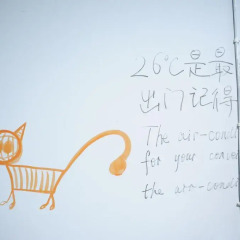 26°C是最
出门记得
The air-condi
for your conven
the arr-condi